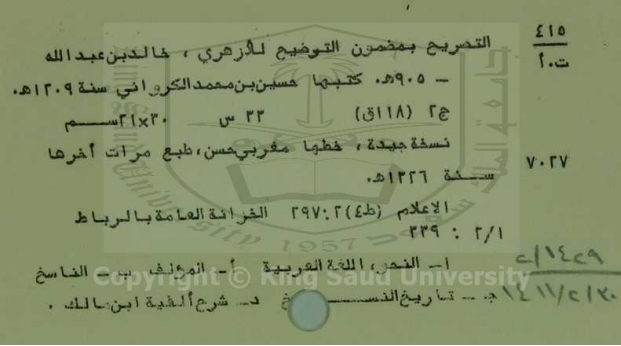 ٤١٥
ت.أ
التصريح بمضمون التوضيح للأزهري ، خالدبن عبدالله
- ٩٠٥هـ. كتبها حسين بن محمد الكرواني سنة ١٢٠٩هـ.
ج٢ (١١٨ق) ٣٣ س ٣٠×٢١سم
نسخة جيدة ، خطها مغربي حسن، طبع مرات أخرها
٧٠٢٧
سنة ١٣٢٦هـ.
الاعلام (ط٤)٢٩٧:٢ الخزانة العامة بالرباط
٢/١ : ٣٣٩
١- النحو، اللغة العربية أ- المؤلف ب- الناسخ
ج- تاريخ النسخ د- شرح ألفية ابن مالك .
١٤٢٩/ح
١٤١١/٢/٢٠
Copyright © King Saud University
1957